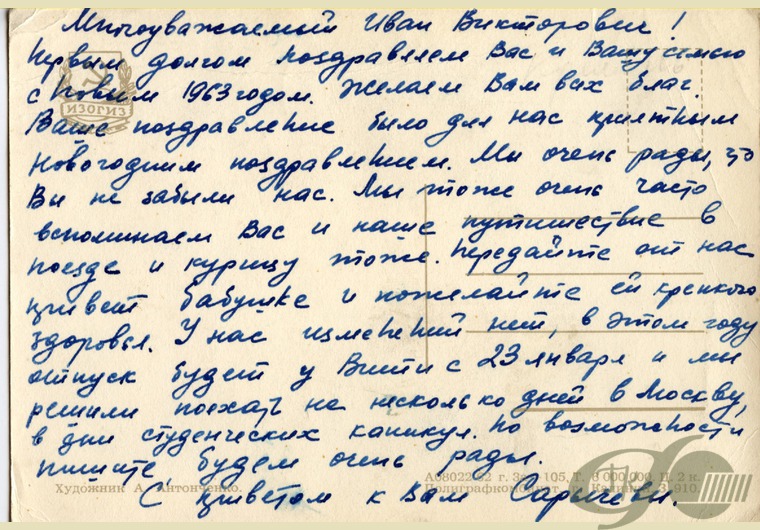 Многоуважаемый Иван Викторович!
Первым долгом поздравляем Вас и Вашу семью
с Новым 1963 годом. Желаем Вам всех благ.
ИЗОГИЗ
Ваше поздравление было для нас приятным
новогодним поздравлением. Мы очень рады, что
Вы не забыли нас. Мы тоже очень часто
вспоминаем Вас и наше путишествие в
поезде и курицу тоже. Передайте от нас
привет бабушке и пожелайте ей крепкого
здоровья. У нас изменений нет, в этом году
отпуск будет у Вити с 23 января и мы
решили поехать на несколько дней в Москву,
в дни студенческих каникул. По возможности
пишите, будем очень рады.
Художник А. Антонченко.
А08022 г. 105, Т. 8 000 000, Ц. 2 к.
Полиграфкомбинат, г. Калинин, З. 910.
С приветом к Вам Сарычевы.